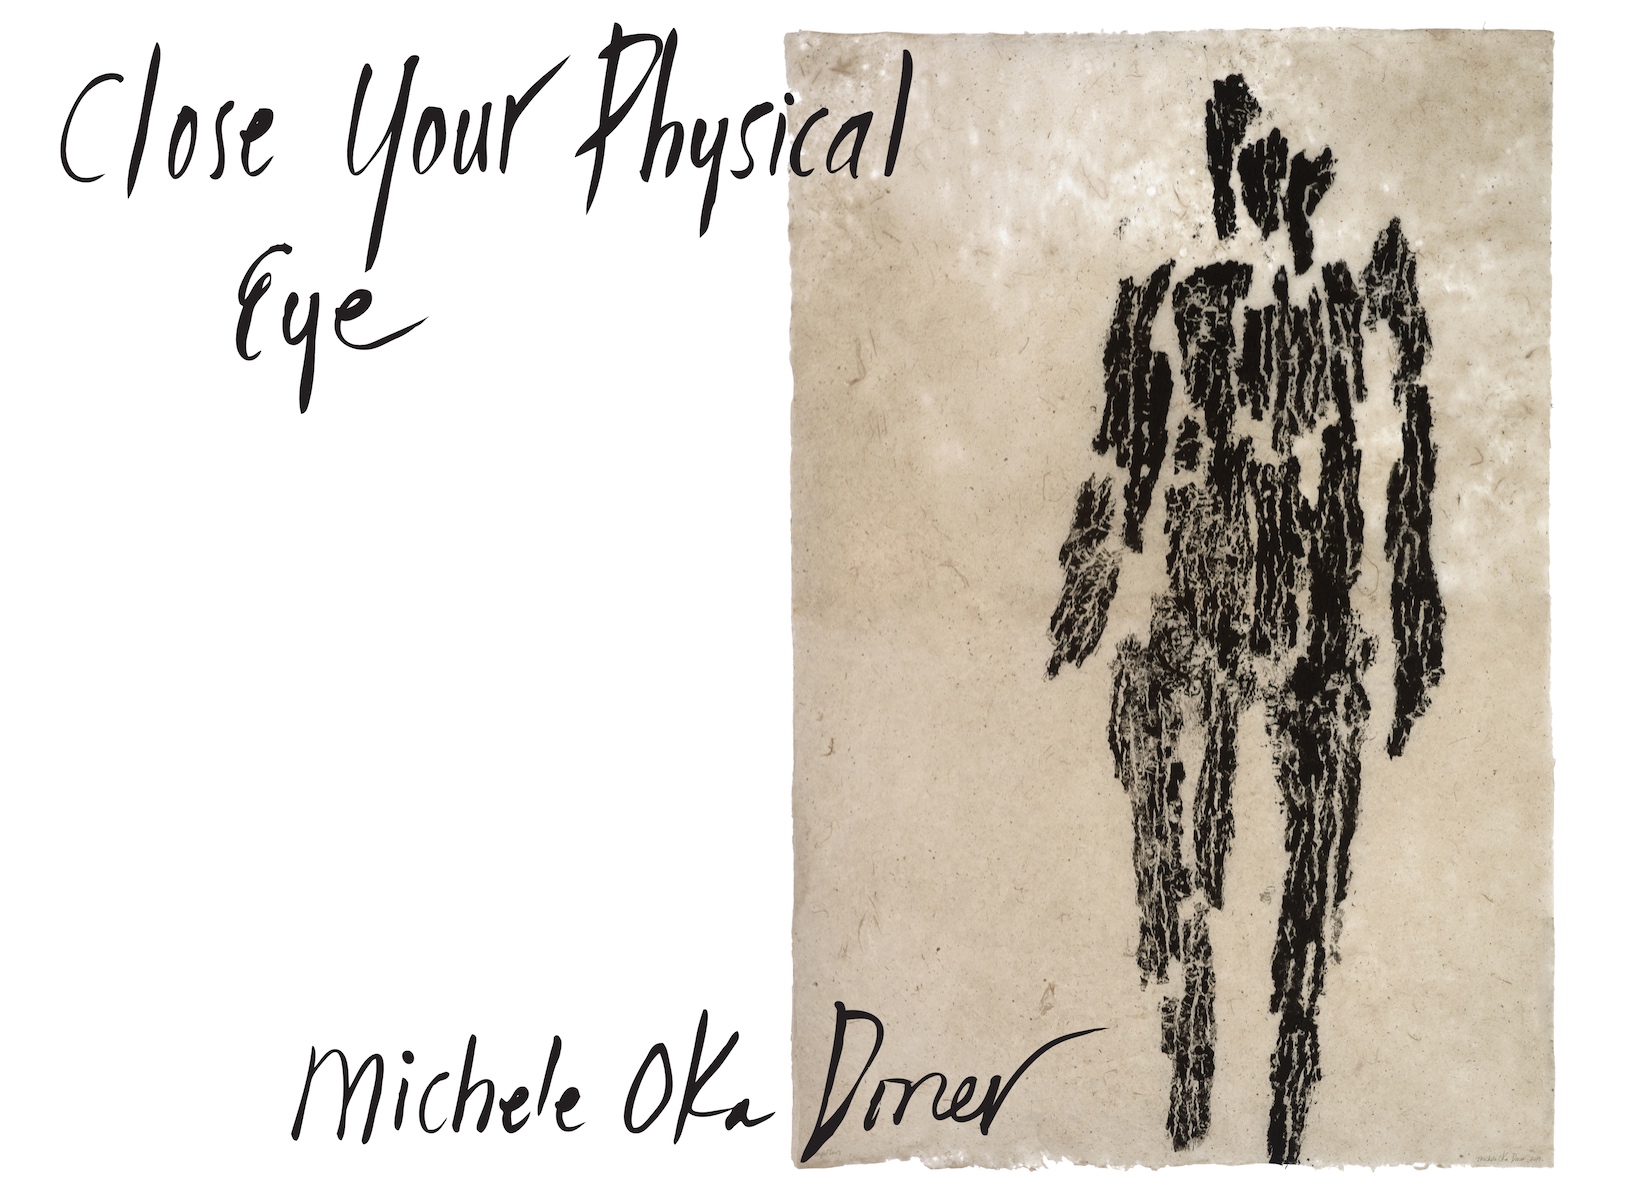 Close Your Physical
Eye
Michele Oka Doner